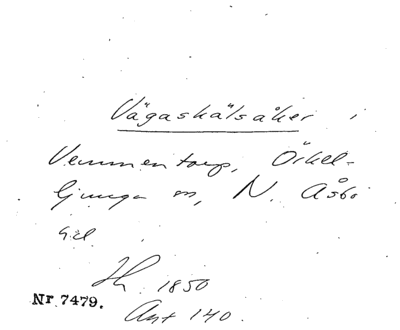 Vägaskälsåker i
Vemmentorp, Örkel-
ljunga sn, N. Åsbo
hd.
Th. 1850
Nr 7479.
Ant 140.